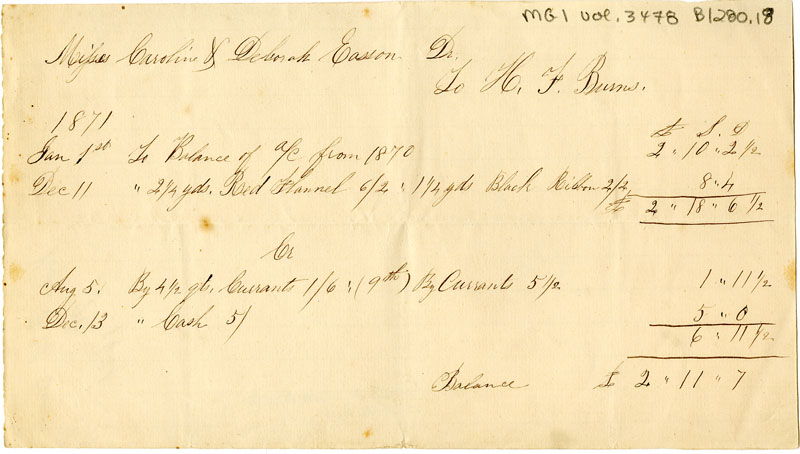 MG1 vol. 3478 B1280.18
Misses Caroline & Deborah Easson Dr.
To H. F. Burns.
1871
£ S. D
Jan 1st To Balance of a/c from 1870 2 " 10 " 2 1/2
Dec 11 " 2 1/4 yds. Red Flannel 6/2 " 1 1/4 yds Black Ribbon 2/2 8 " 4
£ 2 " 18 " 6 1/2
Cr
Aug 5. By 4 1/2 qts. Currants 1/6 " (9th) By Currants 5 1/2 1 " 11 1/2
Dec. 13 " Cash 5/ 5 " 0
6 " 11 1/2
Balance £ 2 " 11 " 7